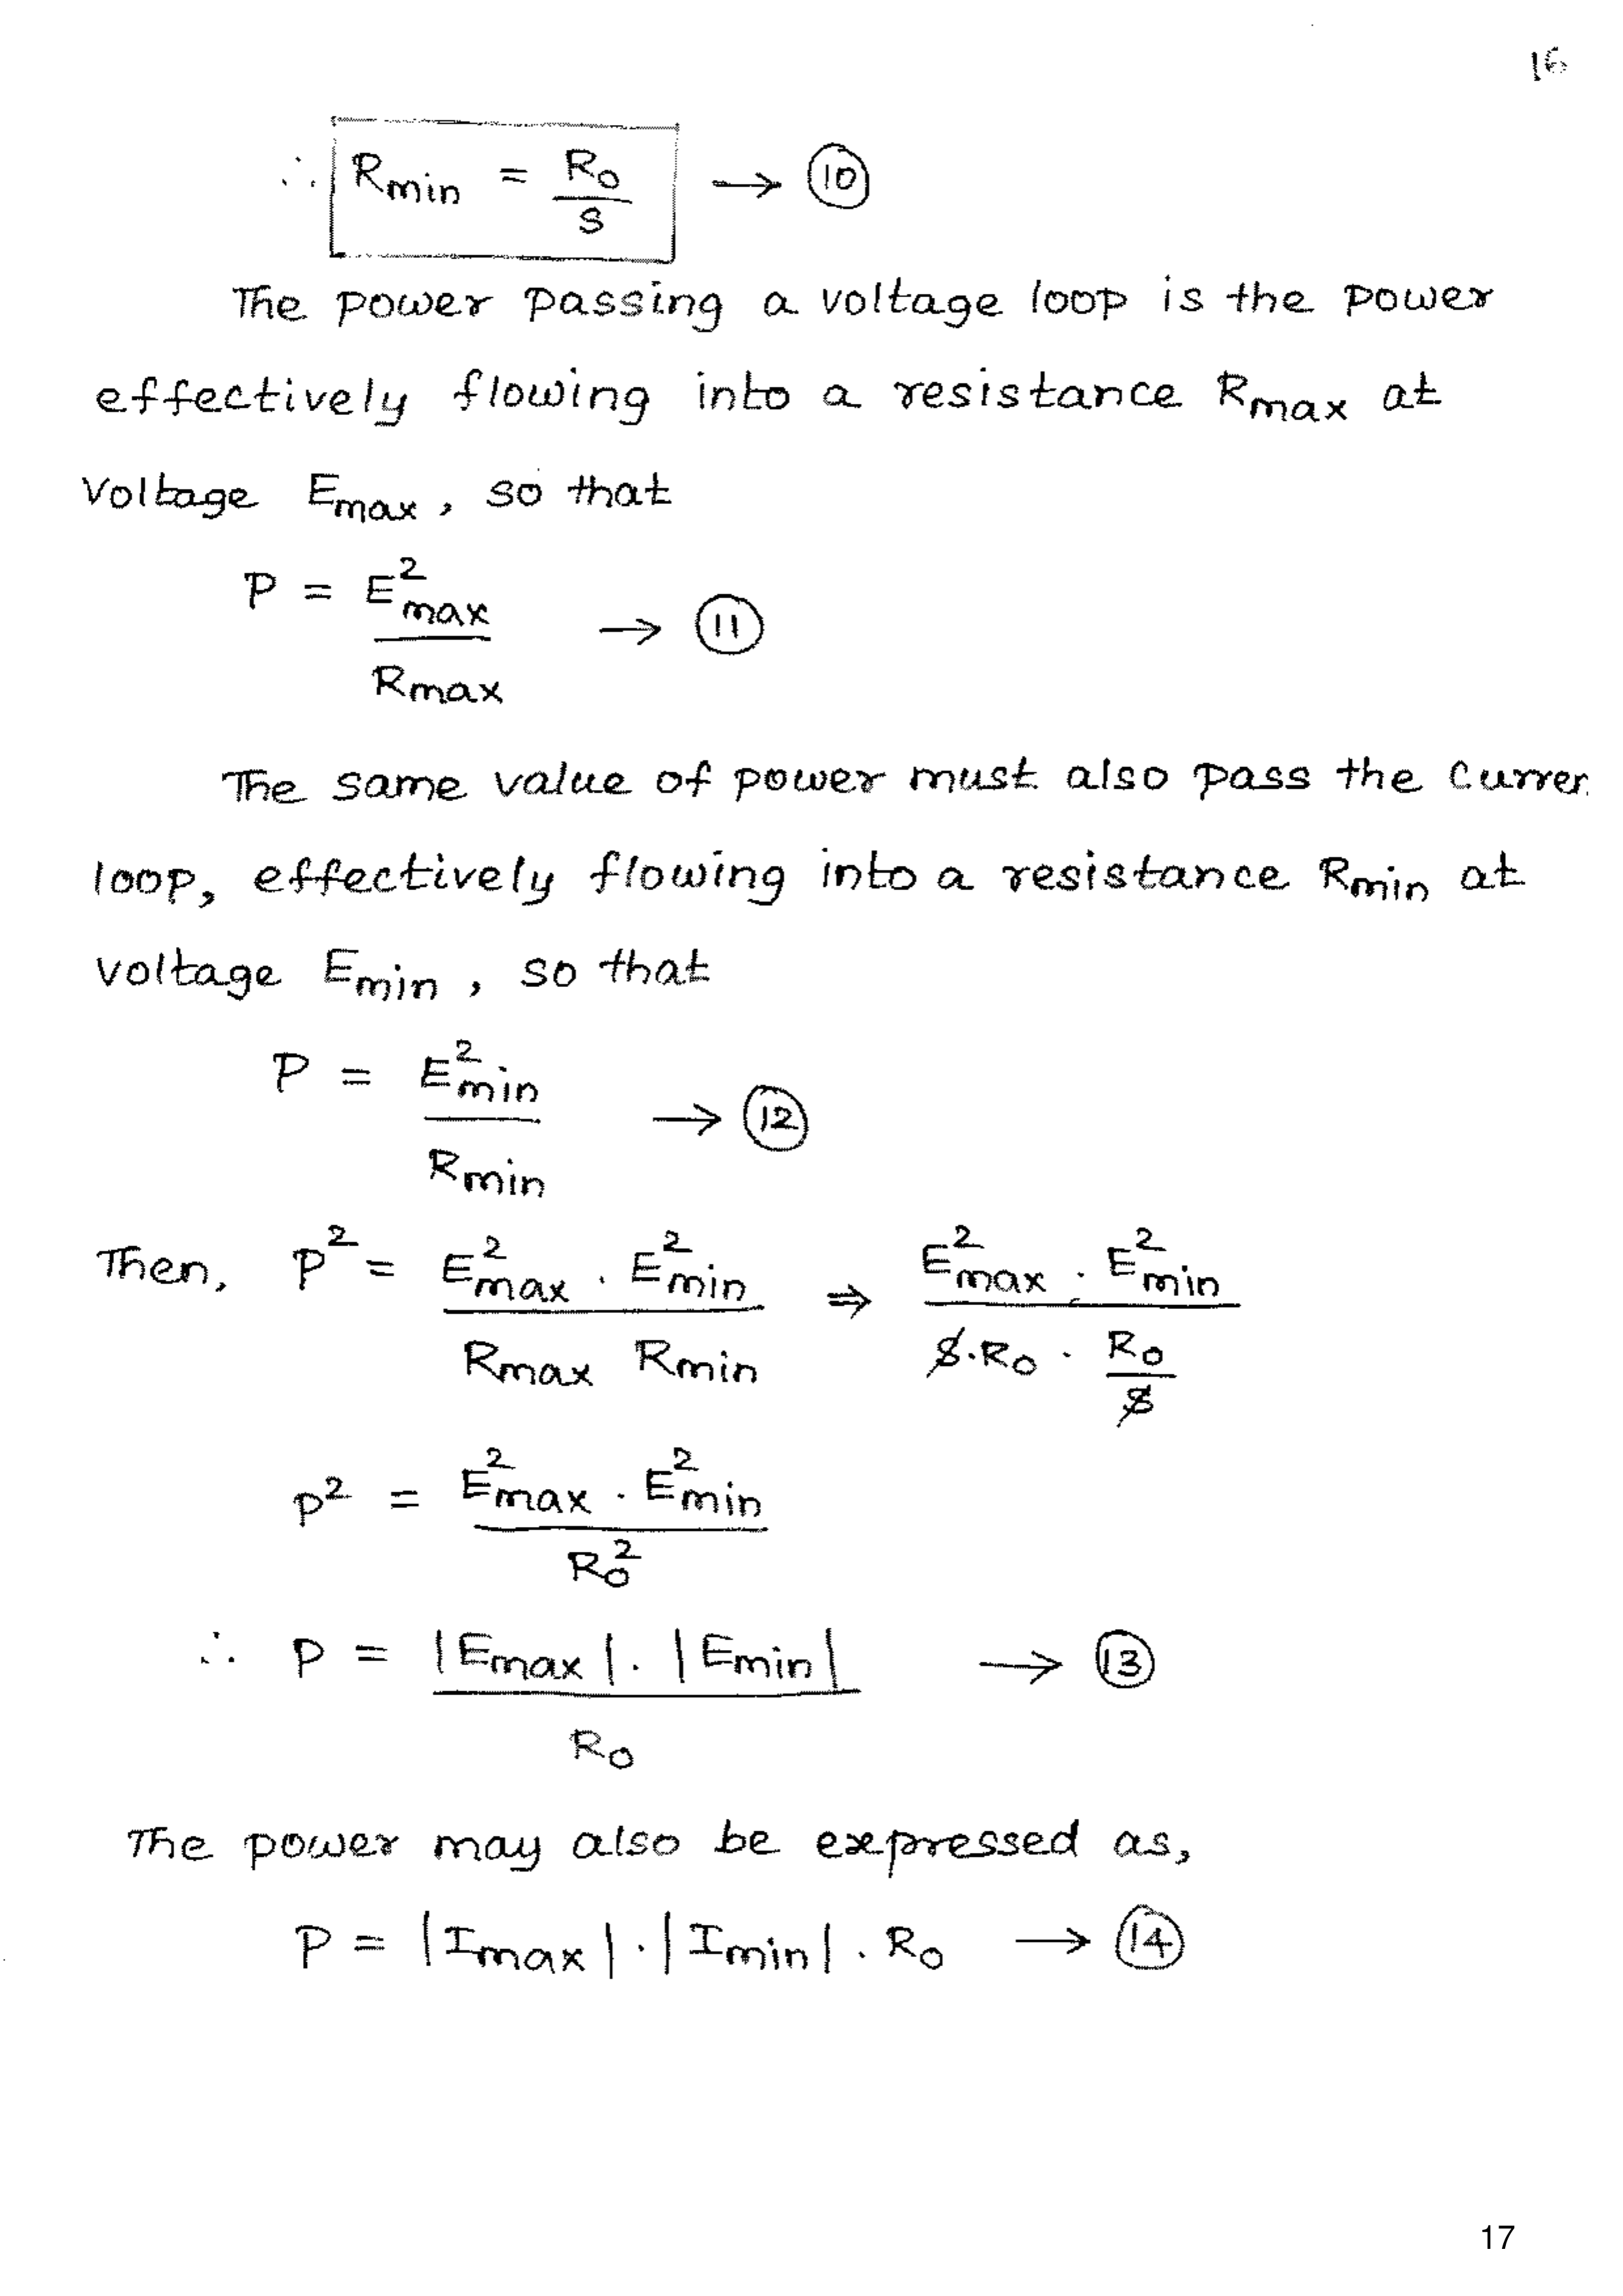 16
∴ Rmin = R₀/S → (10)
The power passing a voltage loop is the power
effectively flowing into a resistance Rmax at
voltage Emax, so that
P = E²max/Rmax → (11)
The same value of power must also pass the Curren
loop, effectively flowing into a resistance Rmin at
voltage Emin, so that
P = E²min/Rmin → (12)
Then, P² = E²max . E²min/Rmax Rmin ⇒ E²max . E²min/S.R₀ . R₀/S
P² = E²max . E²min/R₀²
∴ P = |Emax| . |Emin|/R₀ → (13)
The power may also be expressed as,
P = |Imax| . |Imin| . R₀ → (14)
17